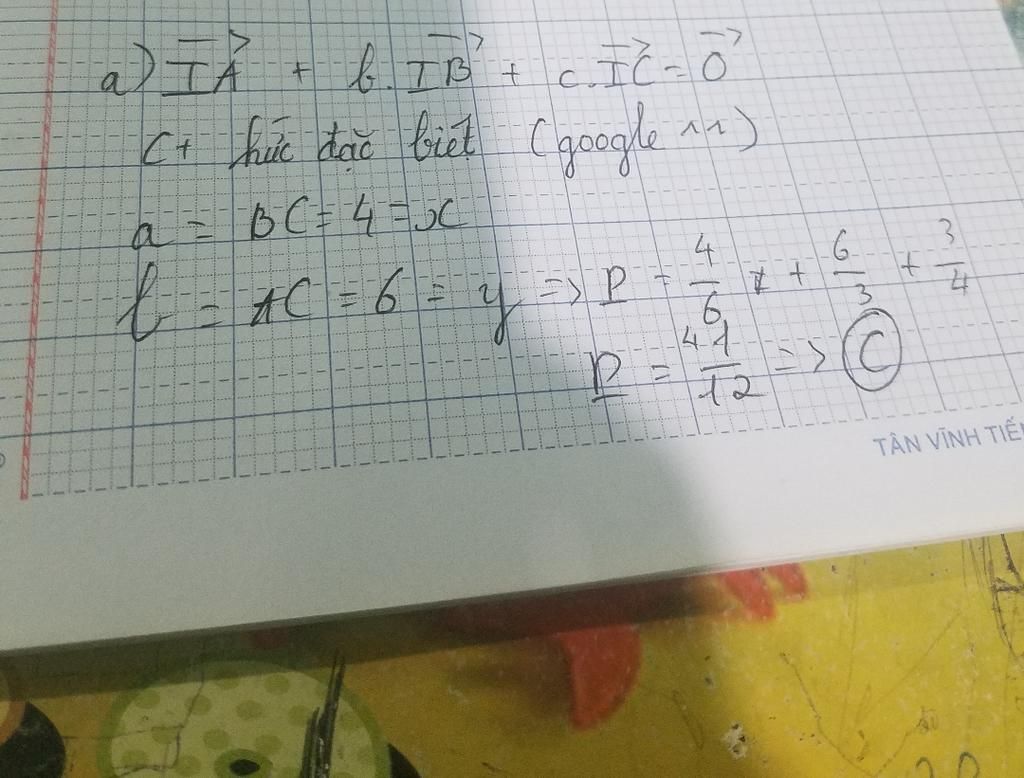 a) IA + b. IB + c. IC = 0
C+ hức đặc biết (google ^^)
a = BC = 4 = x
b = AC = 6 = y => P = 4/6 + 6/3 + 3/4
P = 41/12 => C
TÂN VĨNH TIẾ